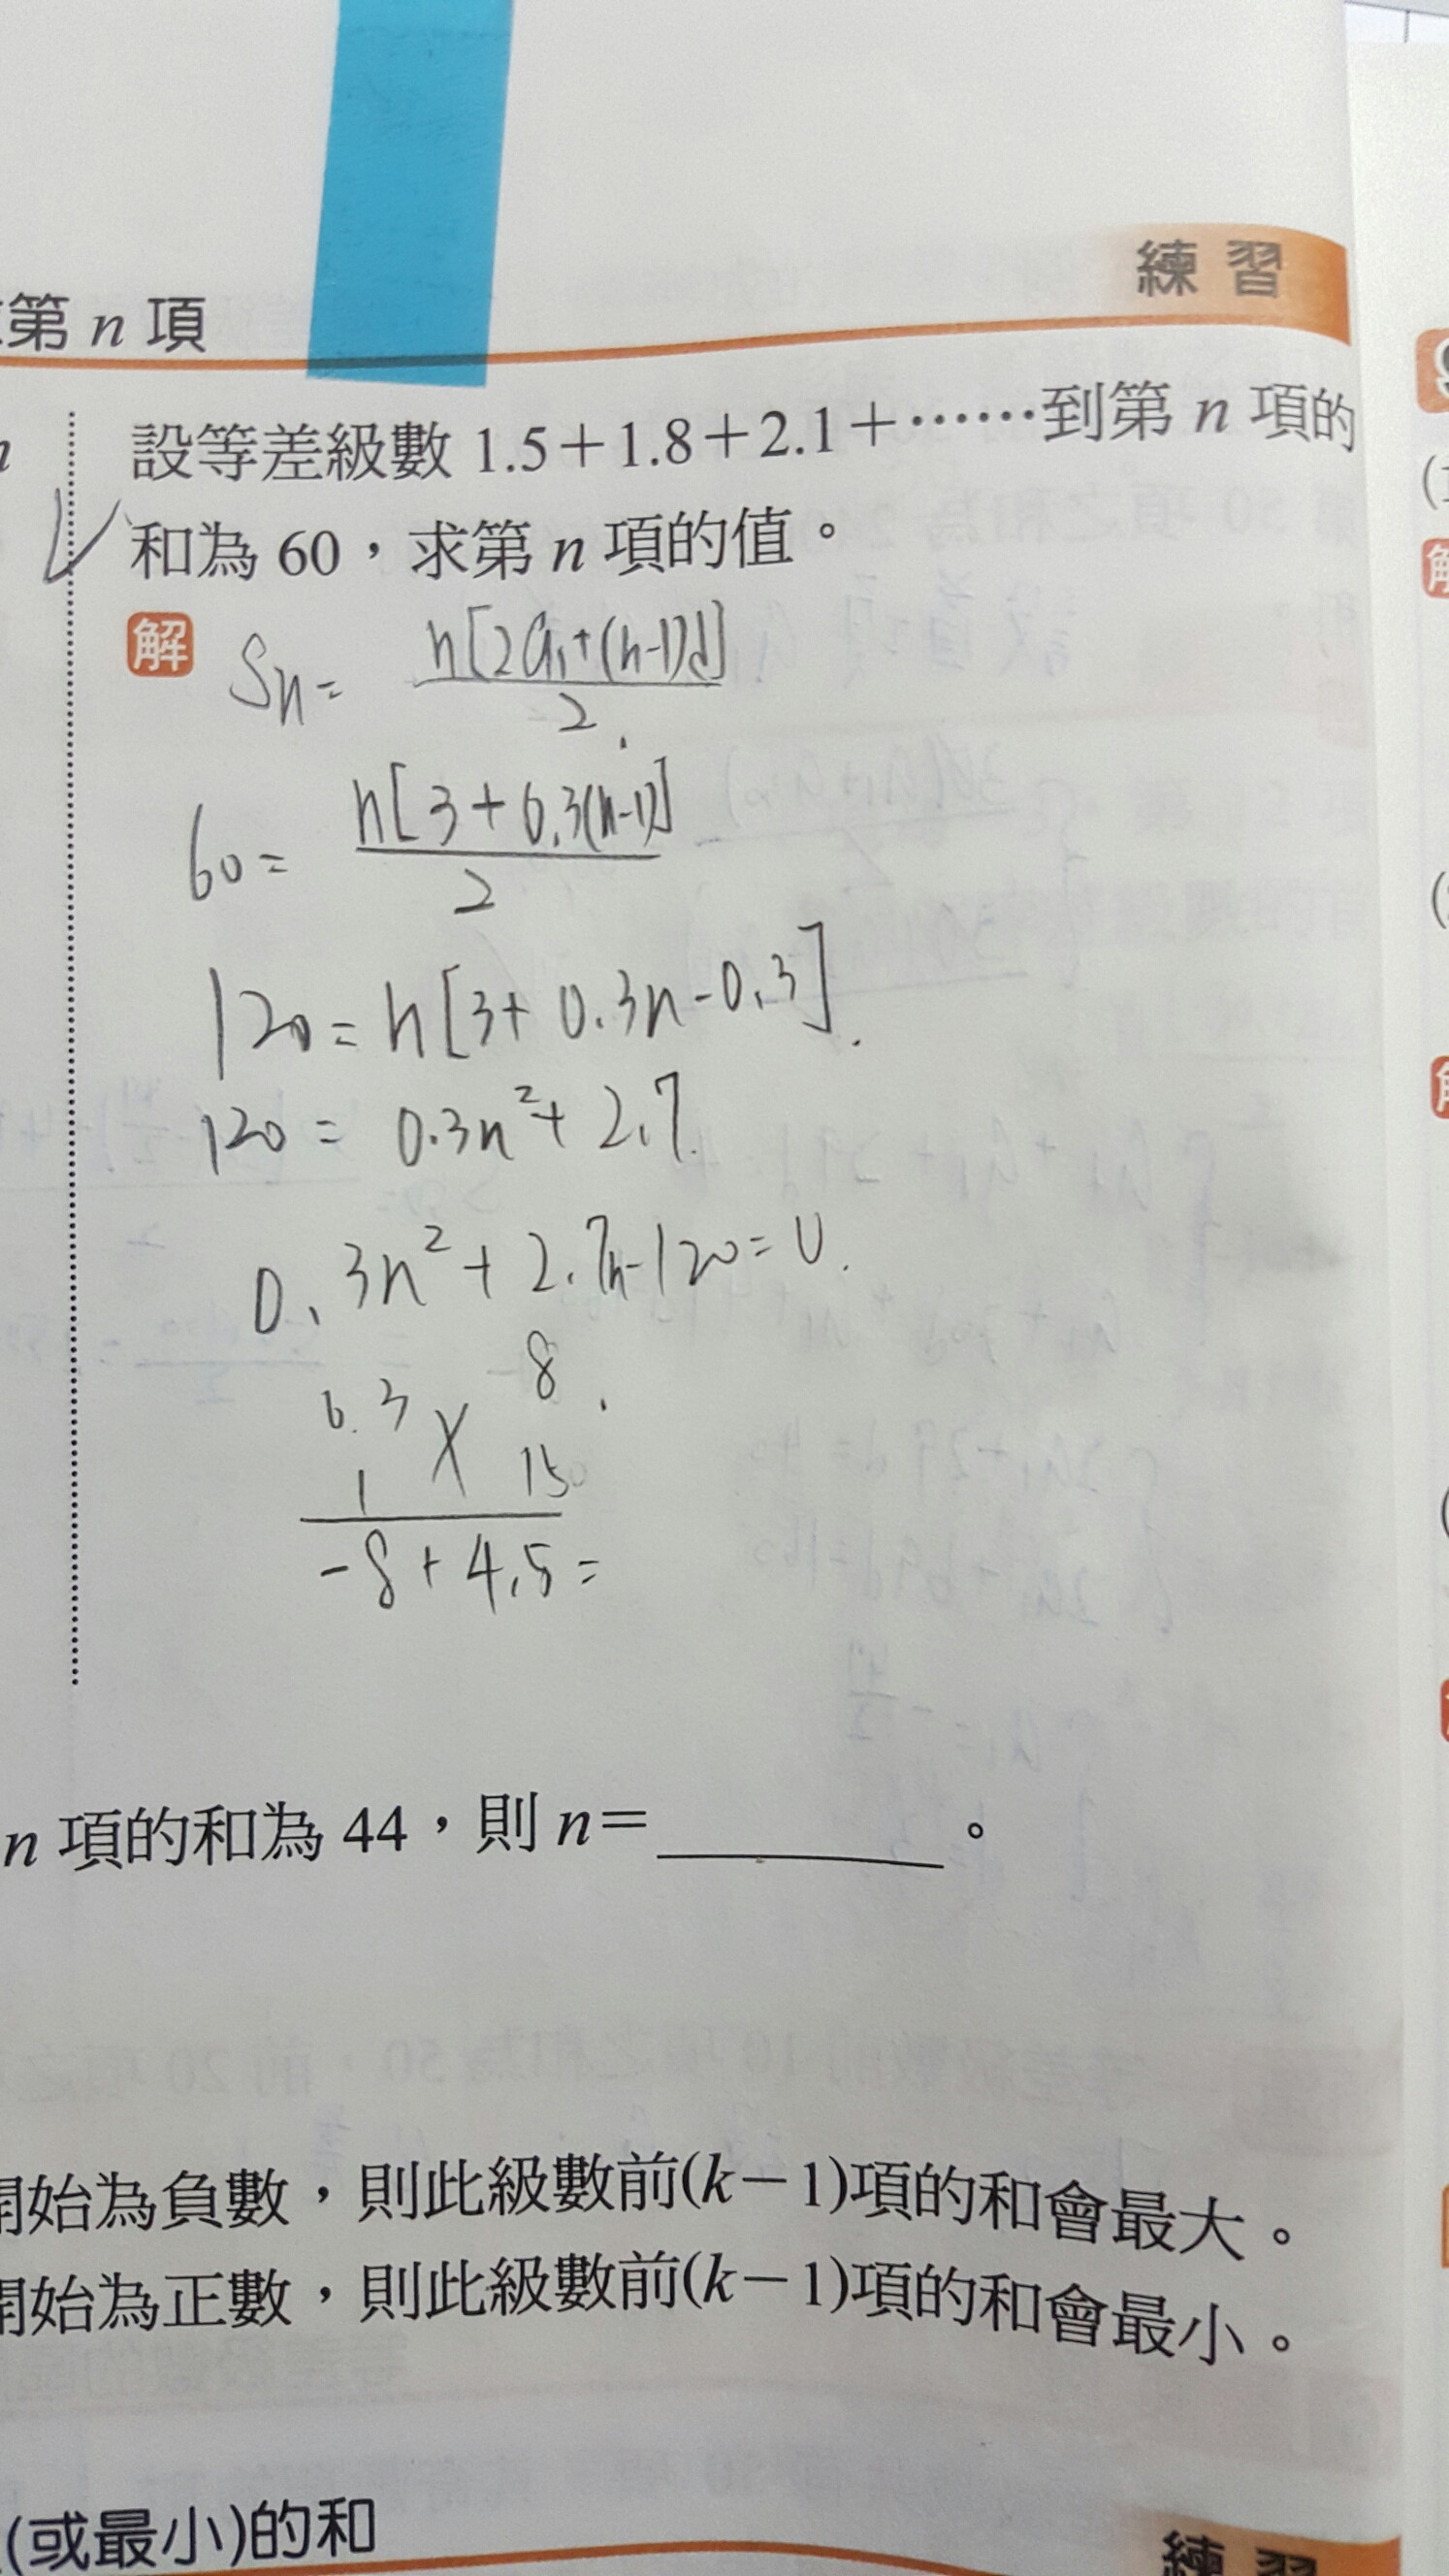 練習
第 n 項
設等差級數 1.5+1.8+2.1+⋯⋯到第 n 項的
和為 60，求第 n 項的值。
解
Sn= n[2a₁+(n-1)d] / 2
60= n[3+0.3(n-1)] / 2
120= n[3+0.3n-0.3]
120 = 0.3n²+2.7
0.3n²+2.7n-120=0
0.3 8
1 15
-8+4.5=
n 項的和為 44，則 n=＿＿＿＿。
開始為負數，則此級數前(k-1)項的和會最大。
開始為正數，則此級數前(k-1)項的和會最小。
(或最小)的和
練習